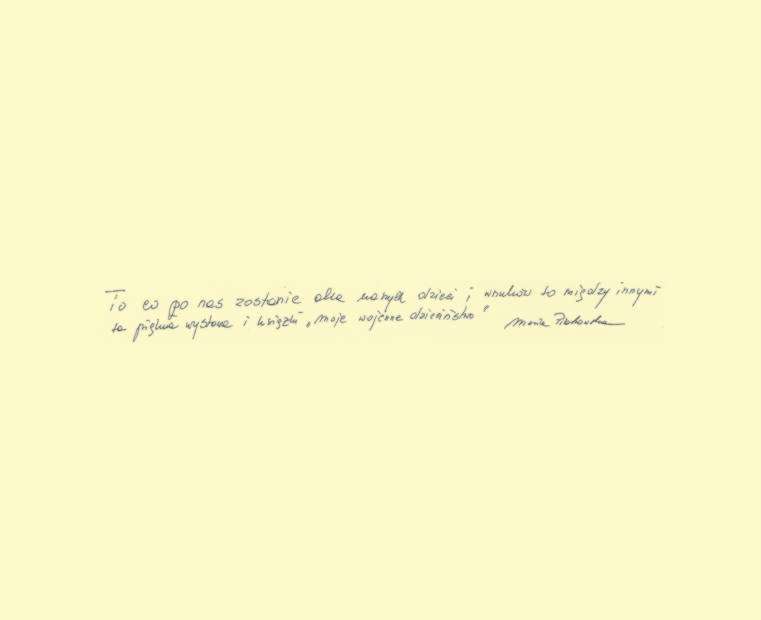 To co po nas zostanie dla naszych dzieci i wnuków to między innymi
ta piękna wystawa i książki „Moje wojenne dzieciństwo"